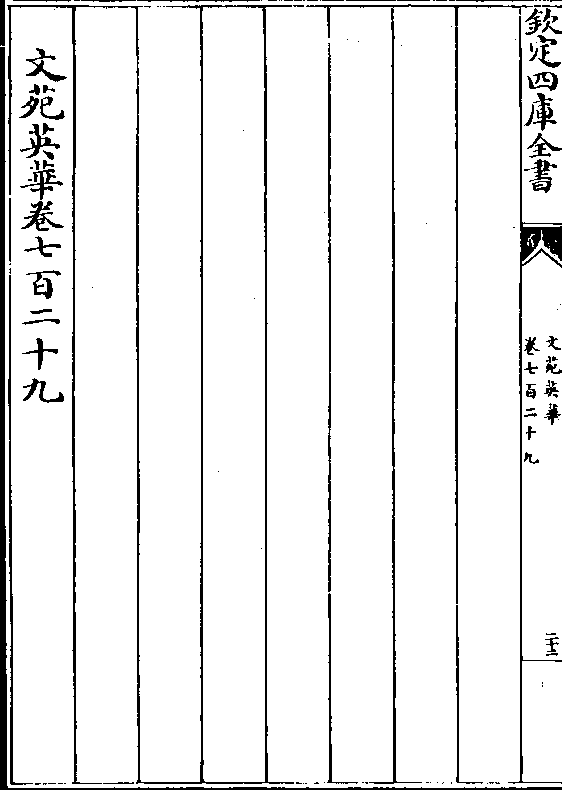 欽定四庫全書
文苑英華
卷七百二十九
二十三
文苑英華卷七百二十九